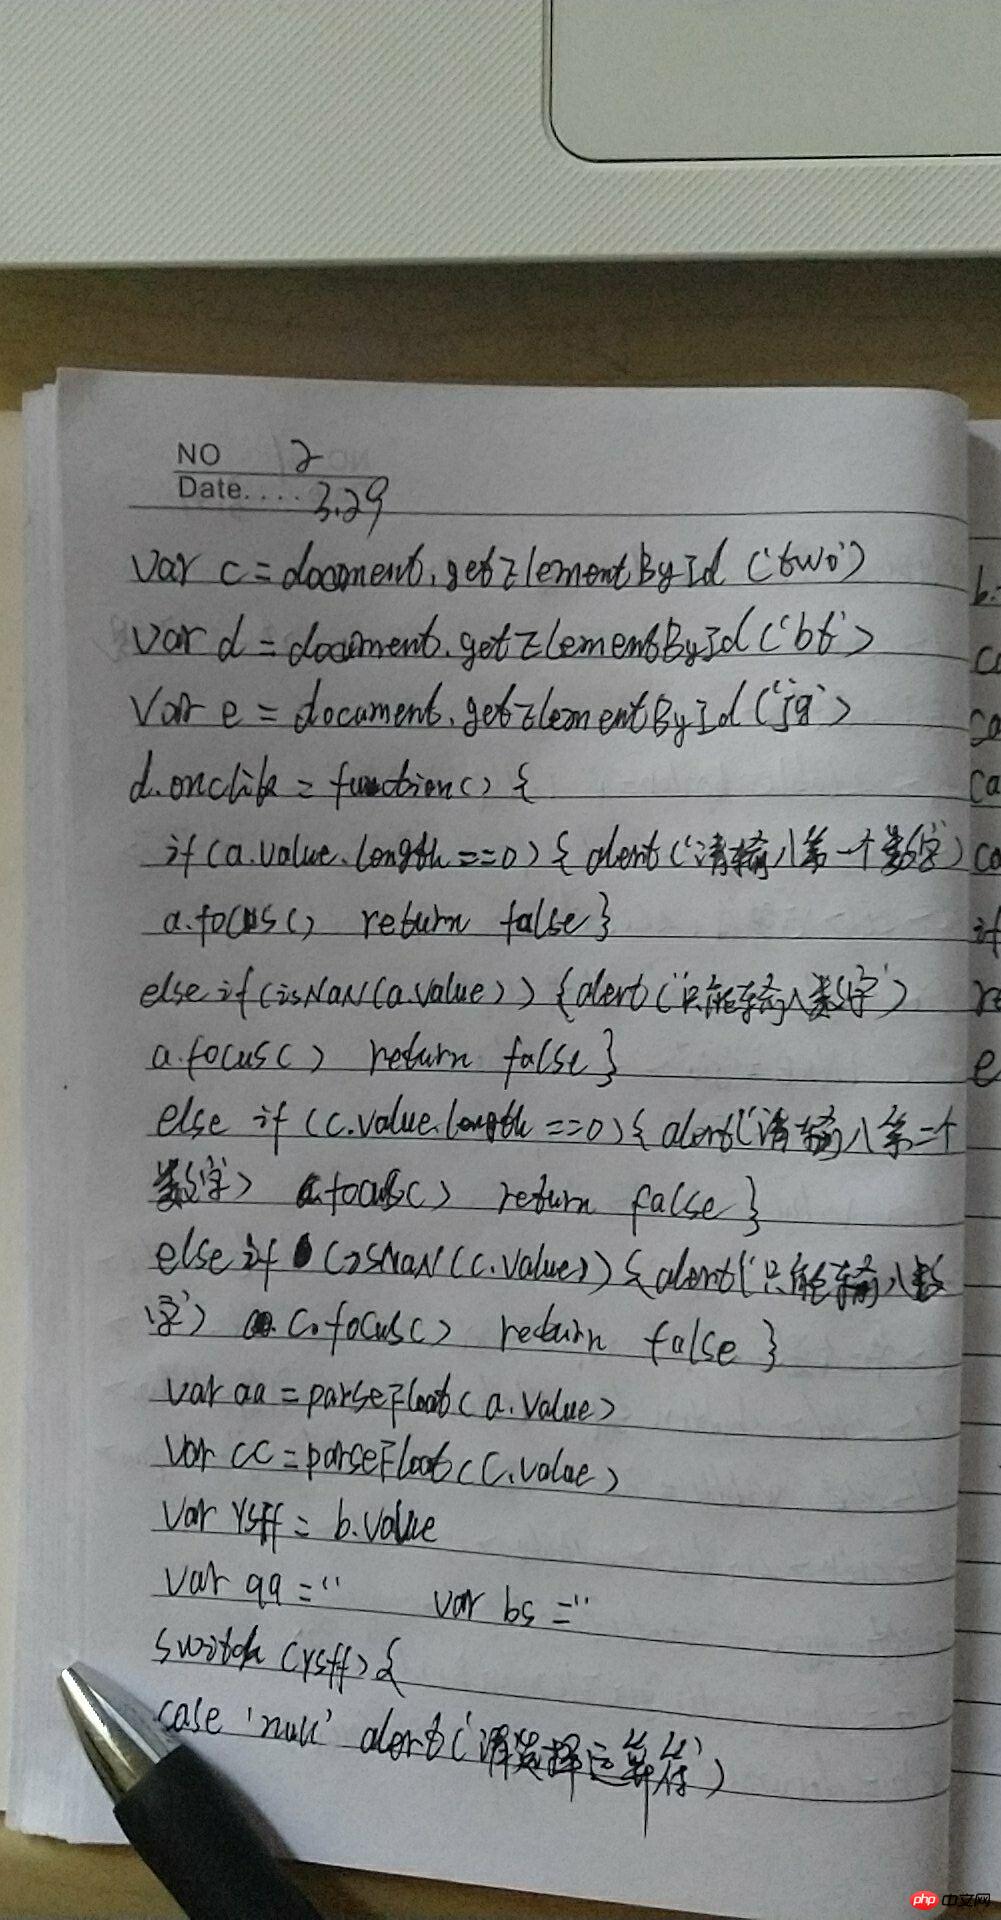 NO 2
Date.... 3.29
var c = document.getElementById('two')
var d = document.getElementById('bt')
var e = document.getElementById('jg')
d.onclik = function() {
if (a.value.length==0) { alert('请输入第一个数字')
a.focus() return false }
else if (isNaN(a.value)) { alert('只能输入数字')
a.focus() return false }
else if (c.value.length ==0) { alert('请输入第二个
数字') c.focus() return false }
else if (isNaN(c.value)) { alert('只能输入数
字') c.focus() return false }
var aa = parseFloat(a.value)
var cc = parseFloat(c.value)
var ysff = b.value
var qq = '' var bs = ''
switch (ysff) {
case 'null' alert('请选择运算符')
b.
ca
ca
ca
ca
if
re
e
php 中文网